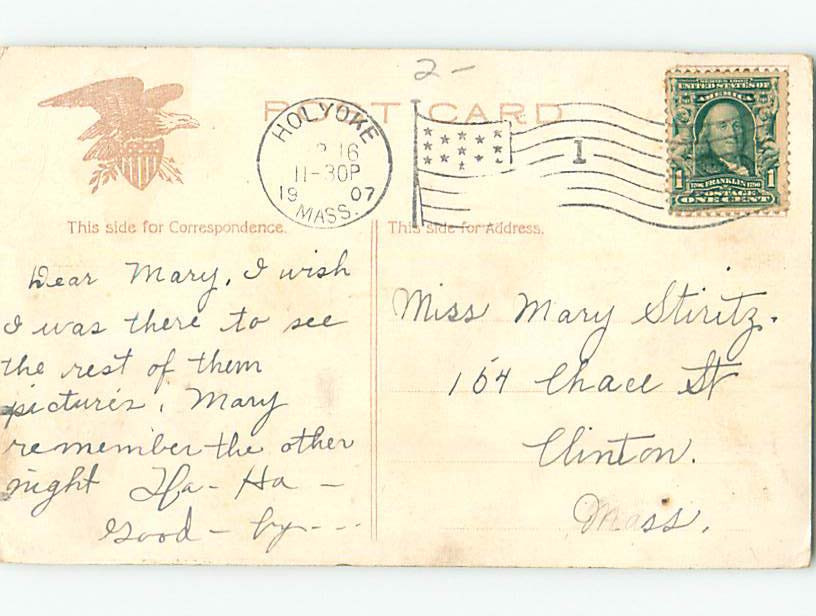 2-
POST CARD
HOLYOKE
16
11-30P
19 07
MASS.
1
SERIES 1902
UNITED STATES OF
AMERICA
1 1
1706 FRANKLIN 1790
POSTAGE
ONE CENT
This side for Correspondence.
This side for Address.
Dear Mary, I wish
I was there to see
the rest of them
pictures, Mary
remember the other
night Ha- Ha -
Good - by---
Miss Mary Stiritz.
164 Chace St
Clinton.
Mass.